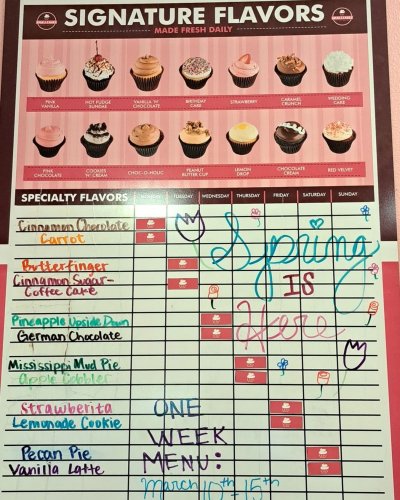 SIGNATURE FLAVORS
MADE FRESH DAILY
PINK VANILLA
HOT FUDGE SUNDAE
VANILLA 'N' CHOCOLATE
BIRTHDAY CAKE
STRAWBERRY
CARAMEL CRUNCH
WEDDING CAKE
PINK CHOCOLATE
COOKIES 'N' CREAM
CHOC-O-HOLIC
PEANUT BUTTER CUP
LEMON DROP
CHOCOLATE CREAM
RED VELVET
SPECIALTY FLAVORS
TUESDAY WEDNESDAY THURSDAY FRIDAY SATURDAY SUNDAY
Cinnamon Chocolate
Carrot
Butterfinger
Cinnamon Sugar-
Coffee Cake
Spring
IS
Here
Pineapple Upside Down
German Chocolate
Mississippi Mud Pie
Apple Cobbler
Strawberita
Lemonade Cookie
Pecan Pie
Vanilla Latte
ONE
WEEK
MENU:
March 10th 15th